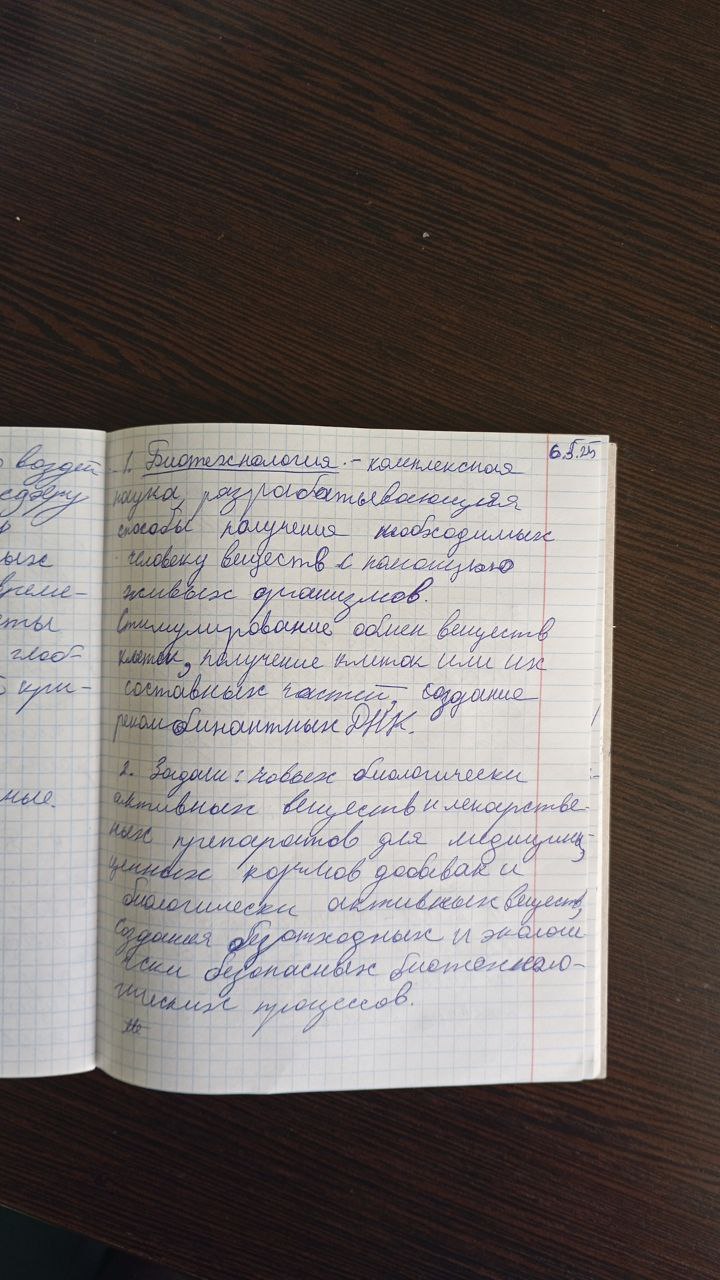 воздей
сферу
ных
време-
еты
глоб-
кри-
ные.
6.5.25
1. Биотехнология. - комплексная
наука, разрабатывающая
способы получения необходимых
человеку веществ с помощью
живых организмов.
Стимулирование обмен веществ
клеток, получение клеток или их
составных частей, создание
рекомбинантных ДНК.
2. Задачи: новых биологически
активных веществ и лекарстве-
ных препаратов для медицины,
ценных кормов добавак и
биологически активных веществ,
создания безотходных и экологи
чески безопасных биотехноло-
гических процессов.